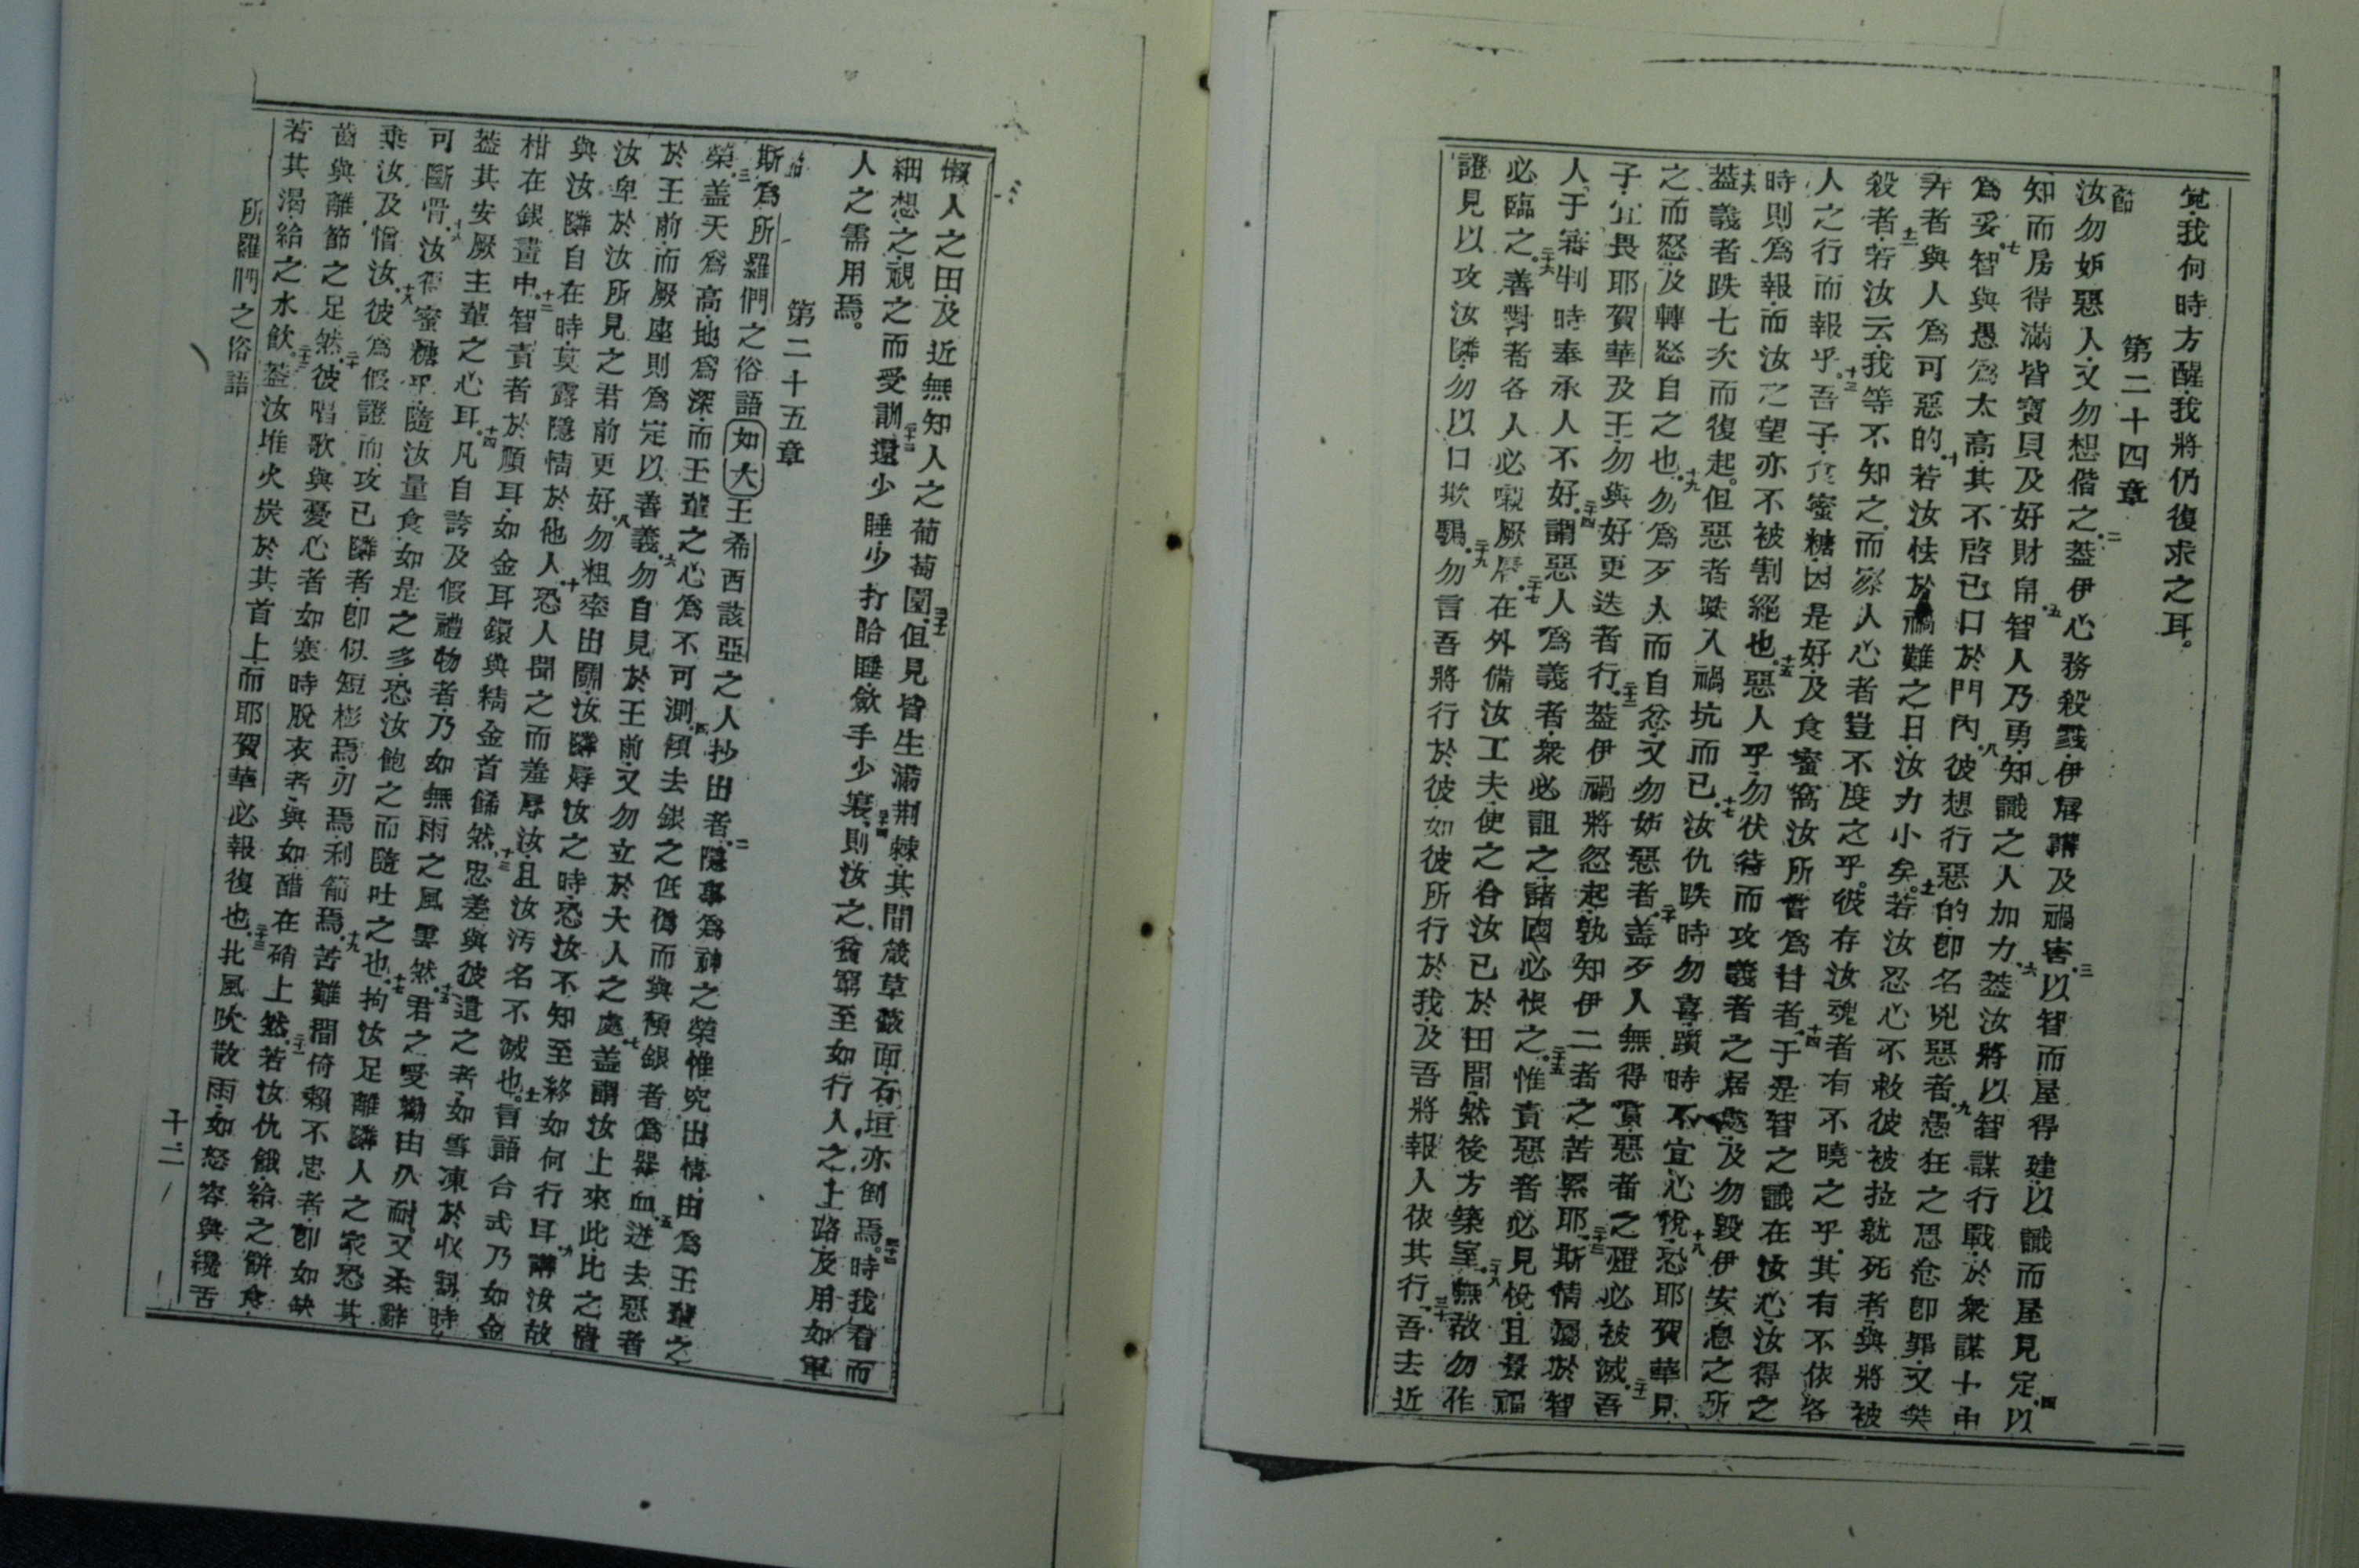 覚我何時方醒我將仍復求之耳。
第二十四章
節 汝勿妬惡人又勿想偕之。二葢伊心務殺戮伊唇講及禍害。三以智而屋得建以識而屋見定。四以
知而房得滿皆寶貝及好財帛。五智人乃勇知識之人加力。六葢汝將以智謀行戰於衆謀十中
爲妥。七智與愚爲太高其不啓己口於門內。八彼想行惡的卽名兇惡者。九愚狂之思念卽罪又
弄者與人爲可惡的。十若汝怯於禍難之日汝力小矣。十一若汝忍心不救彼被拉就死者與將被
殺者。十二若汝云我等不知之而察人心者豈不度之乎。彼存汝魂者有不曉之乎其有不依各
人之行而報乎。十三吾子食蜜糖因是好及食蜜窩汝所嘗爲甘者。十四于是智之識在汝心汝得之
時則爲報而汝之望亦不被割絕也。十五惡人乎勿伏待而攻義者之居處及勿毀伊安息之所
十六葢義者跌七次而復起。但惡者跌入禍坑而已。十七汝仇跌時勿喜躓時不宜心悅。十八恐耶賀華見
之而怒及轉怒自之也。十九勿爲歹人而自忿又勿妬惡者。二十盖歹人無得賞惡者之燈必被滅。二十一吾
子宜畏耶賀華及王勿與好更迭者行。二十二葢伊禍將忽起孰知伊二者之苦累耶。二十三斯情屬於智
人于審判時奉承人不好。二十四謂惡人爲義者衆必詛之諸國必恨之。二十五惟責惡者必見悅且景福
必臨之。二十六善對者各人必嘴厥唇。二十七在外備汝工夫使之合汝已於田間然後方築室。二十八無故勿作
證見以攻汝隣勿以口欺騙。二十九勿言吾將行於彼如彼所行於我及吾將報人依其行。三十吾去近
懶人之田及近無知人之葡萄園。三十一但見皆生滿荆棘其間葳草蔽面石垣亦倒焉。三十二時我看而
細想之視之而受訓。三十三還少睡少打瞌睡歛手少寢。三十四則汝之貧窮至如行人之上路及用如軍
人之需用焉。
第二十五章
節 斯爲所羅們之俗語如大王希西該亞之人抄出者。二隱事爲神之榮惟究出情由爲王輩之
榮。三盖天爲高地爲深而王輩之心爲不可測。四傾去銀之低僞而與傾銀者爲器皿。五逬去惡者
於王前而厥座則爲定以善義。六勿自見於王前又勿立於大人之處。七盖謂汝上來此比之遣
汝卑於汝所見之君前更好。八勿粗率出鬬汝隣辱汝之時恐汝不知至終如何行耳。九講汝故
與汝隣自在時莫露隱情於他人。十恐人聞之而羞辱汝且汝汚名不滅也。十一言語合式乃如金
柑在銀畫中。十二智責者於順耳如金耳鐶與精金首餙然。十三忠差與彼遣之者如雪凍於收割時
葢其安厥主輩之心耳。十四凡自誇及假禮物者乃如無雨之風雲然。十五君之愛勸由久耐又柔辭
可斷骨。十六汝得蜜糖乎隨汝量食如是之多恐汝飽之而隨吐之也。十七拘汝足離隣人之家恐其
乘汝及憎汝。十八彼爲假證而攻己隣者卽似短槌焉刃焉利箭焉。十九苦難間倚賴不忠者卽如缺
齒與離節之足然。二十彼唱歌與憂心者如寒時脫衣者與如醋在硝上然。二十一若汝仇餓給之餅食
若其渴給之水飲。二十二葢汝堆火炭於其首上而耶賀華必報復也。二十三北風吹散雨如怒容與纔舌
所羅們之俗語
十二